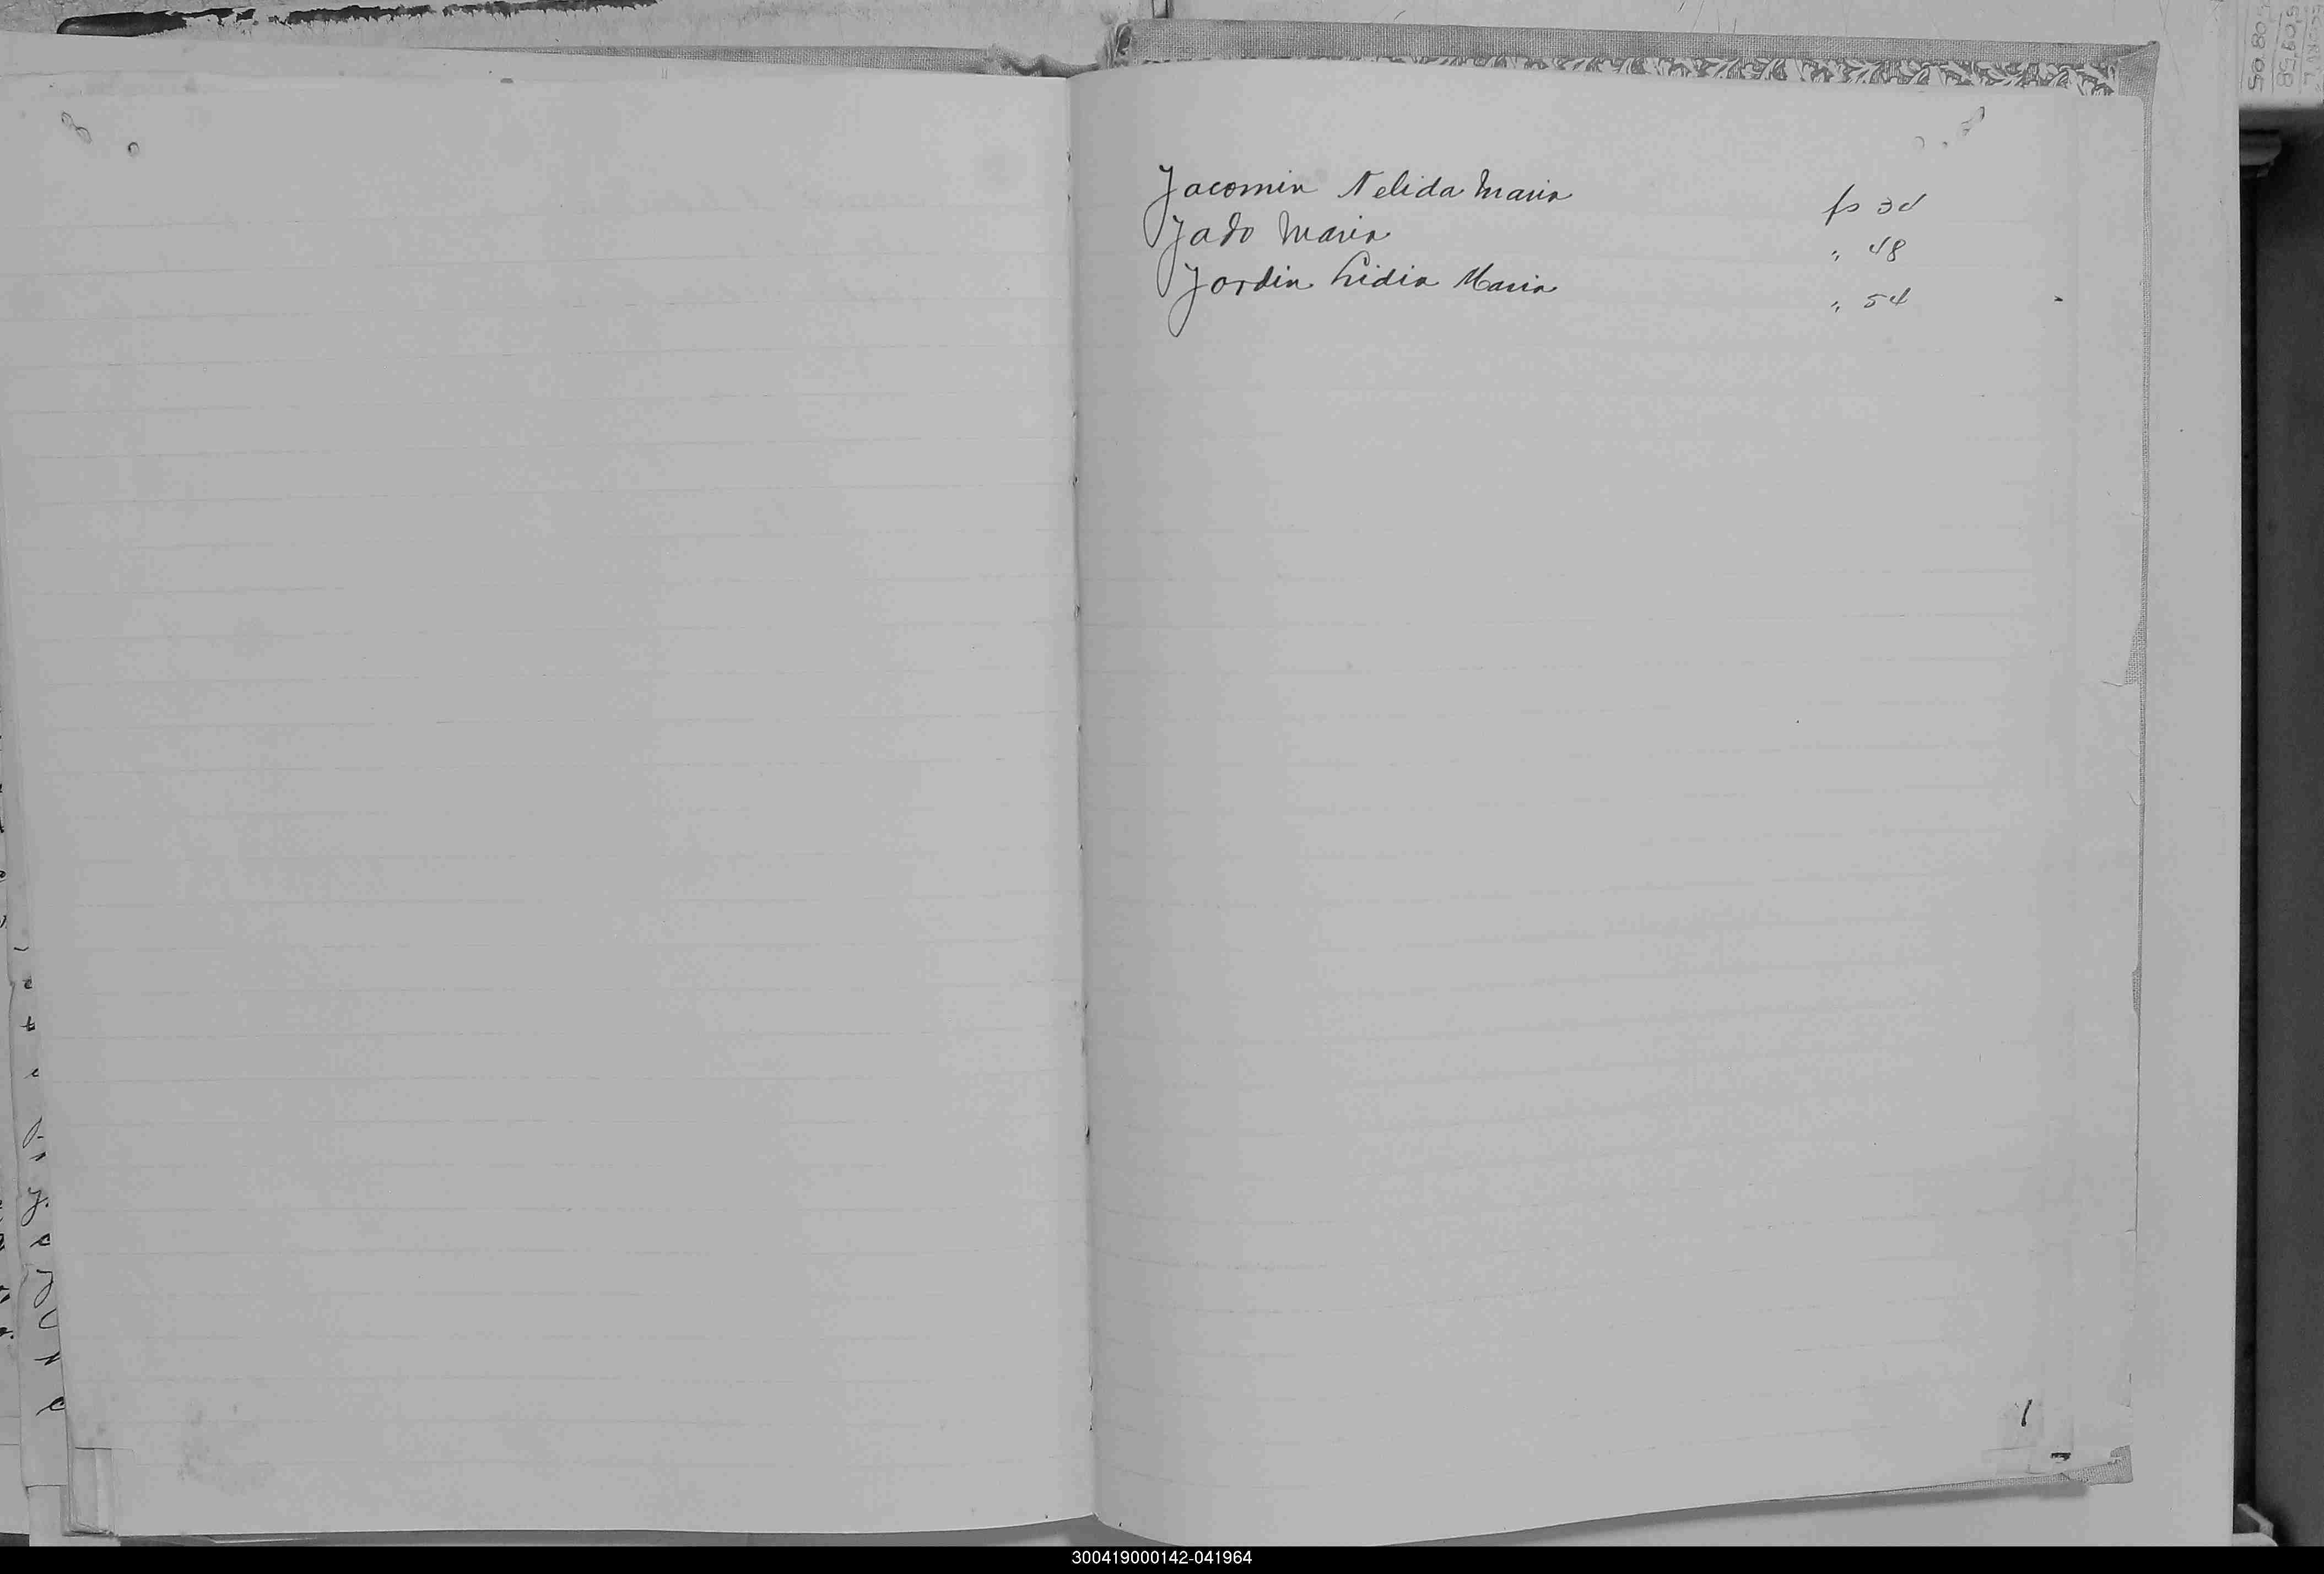 Jacomin Nelida Maria fs 34
Jado Maria " 48
Jordin Lidia Maria " 54
300419000142-041964